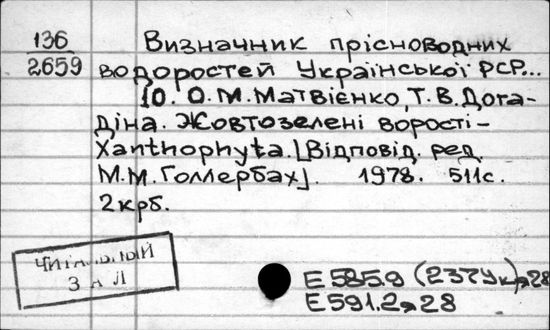 136
2659
Визначник прісноводних
водоростей Української РСР...
10. О.М.Матвієнко, Т.В.Дога-
діна. Жовтозелені ворості-
Xanthophyta.[Відповід. ред.
М.М.Голлербах]. 1978. 511с.
2крб.
ЧИТАЛЬНЫЙ
ЗАЛ
Е585.9 (237Ук)я28
Е591.2я28